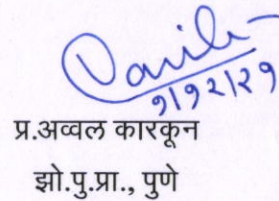 ९।१२।२१
प्र.अव्वल कारकून
झो.पु.प्रा., पुणे